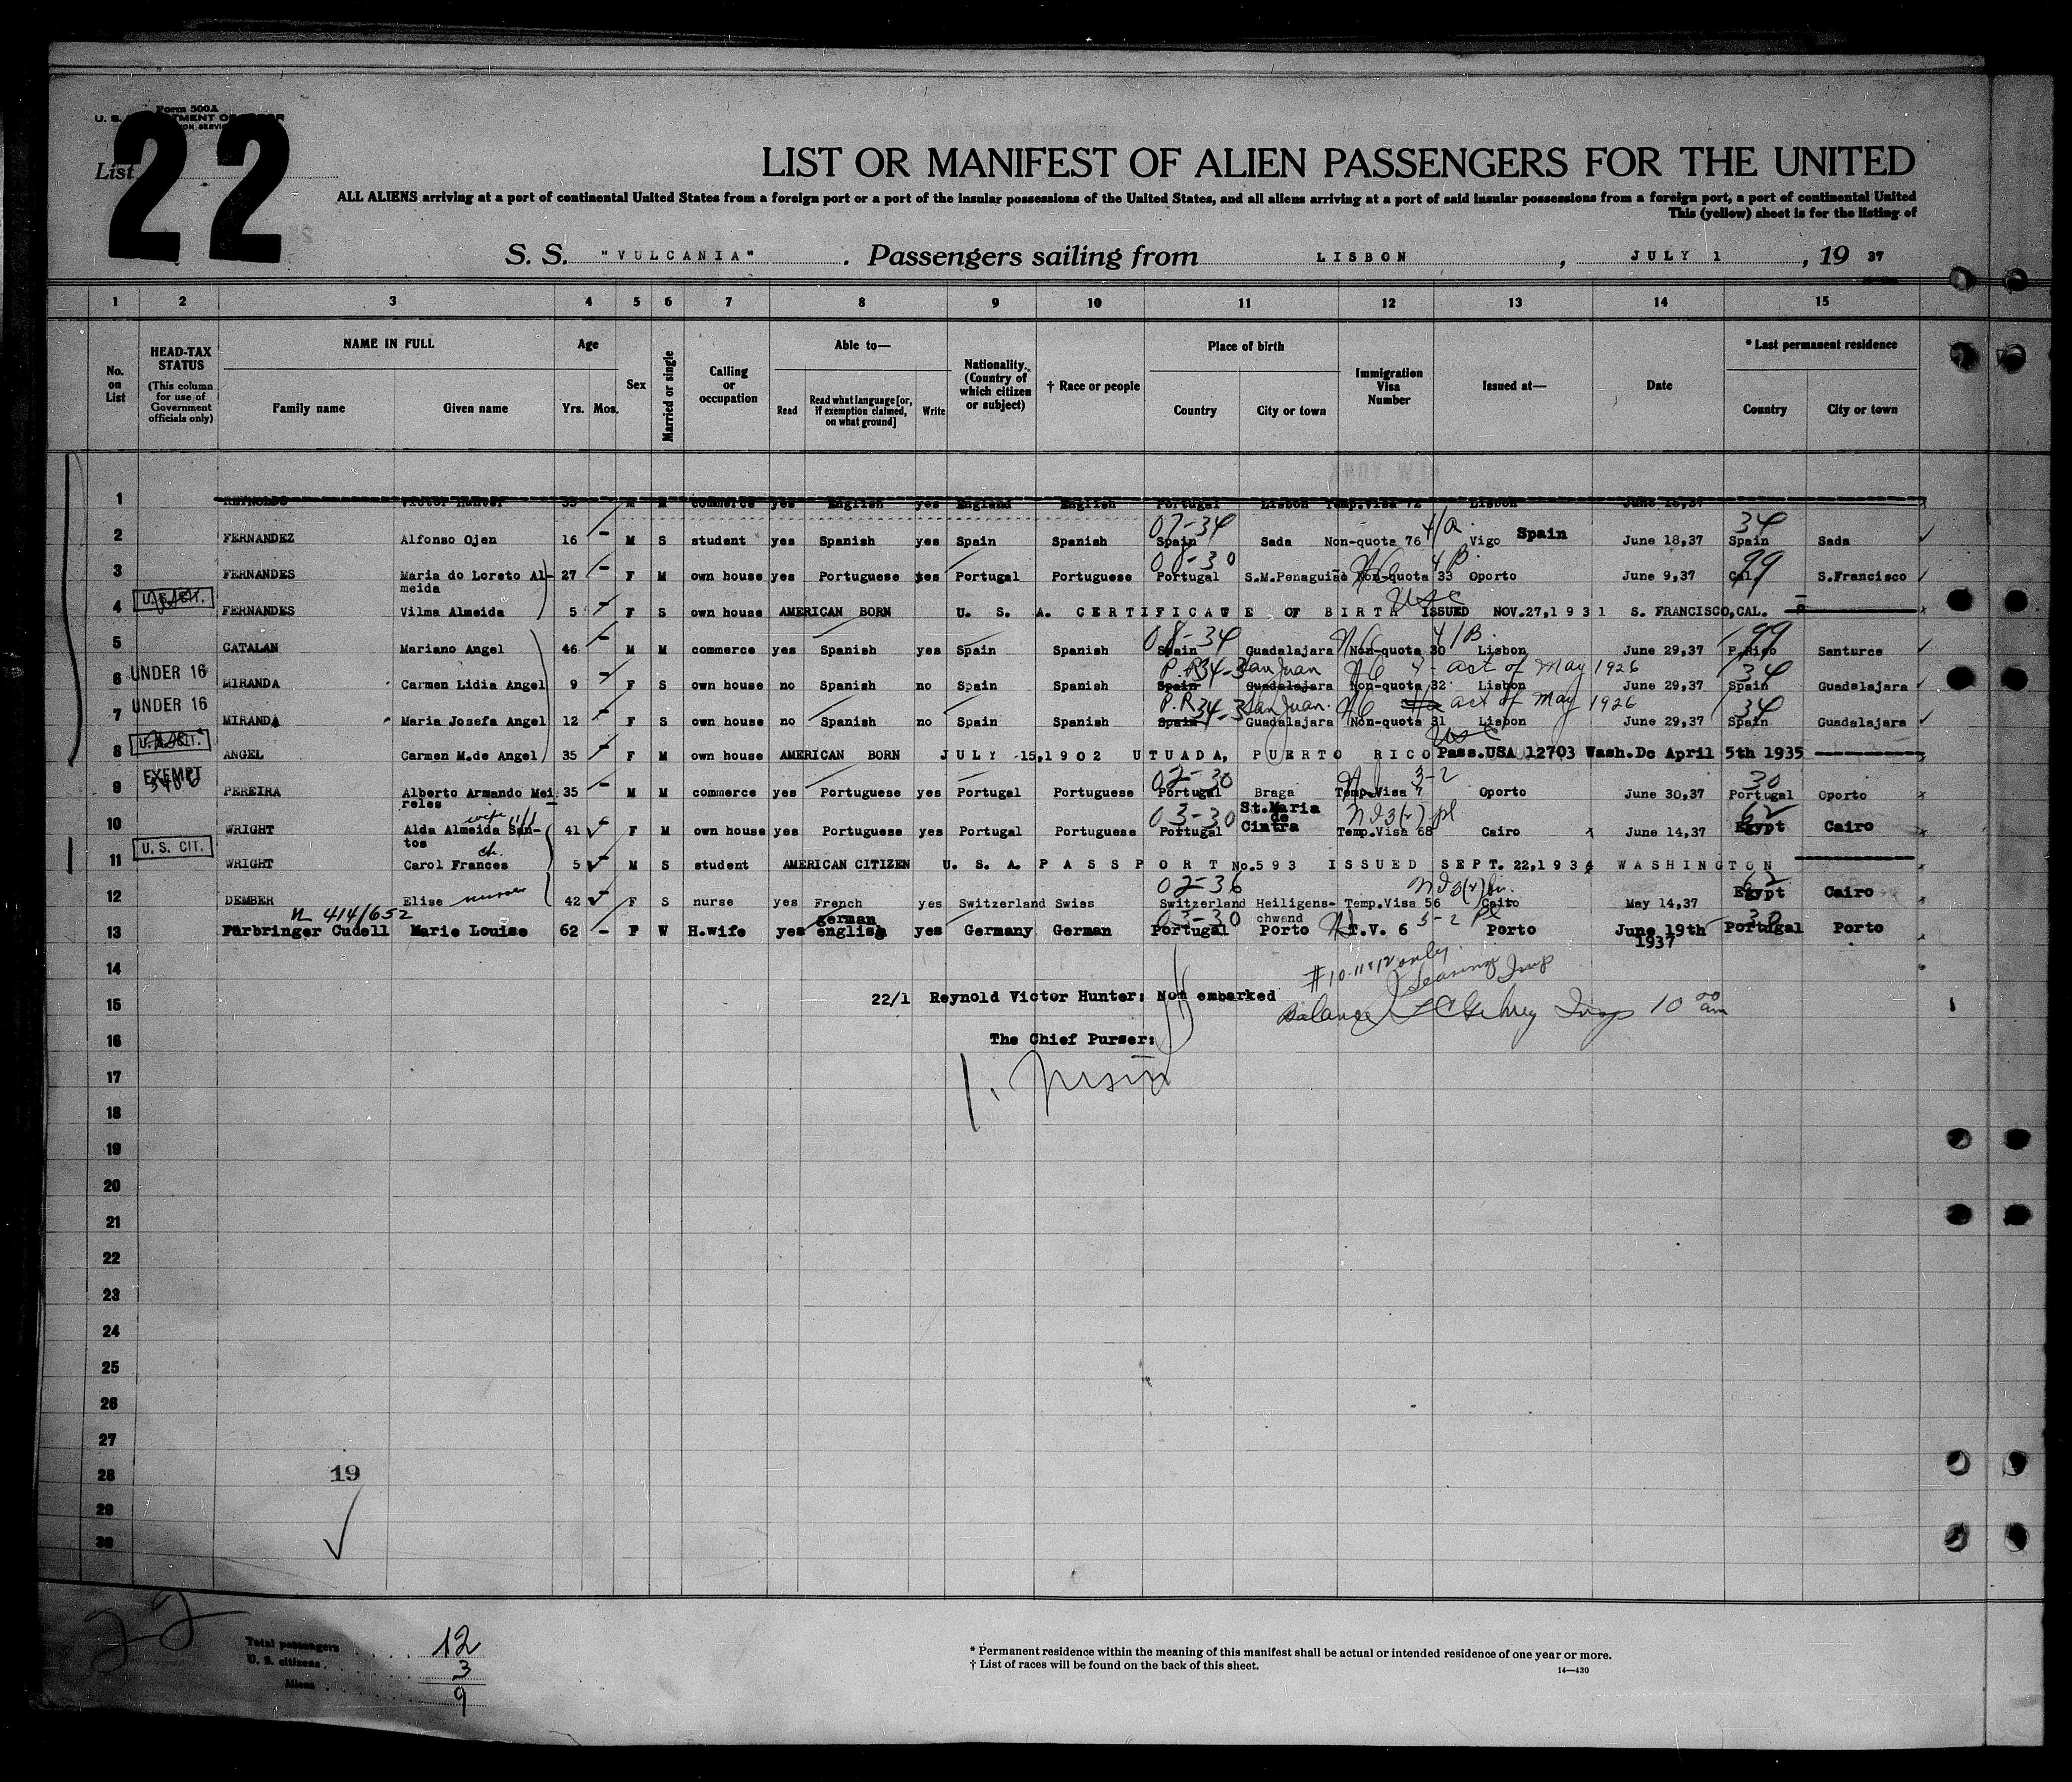 Form 500A
U. S.
22
List
LIST OR MANIFEST OF ALIEN PASSENGERS FOR THE UNITED
ALL ALIENS arriving at a port of continental United States from a foreign port or a port of the insular possessions of the United States, and all aliens arriving at a port of said insular possessions from a foreign port, a port of continental United
This (yellow) sheet is for the listing of
S. S. "VULCANIA". Passengers sailing from LISBON, JULY 1, 19 37
1 2 3 4 5 6 7 8 9 10 11 12 13 14 15
No. on List
HEAD-TAX STATUS
(This column for use of Government officials only)
NAME IN FULL
Family name Given name
Age
Yrs. Mos.
Sex
Married or single
Calling or occupation
Able to—
Read Read what language [or, if exemption claimed, on what ground] Write
Nationality. (Country of which citizen or subject)
† Race or people
Place of birth
Country City or town
Immigration Visa Number
Issued at—
Date
* Last permanent residence
Country City or town
1 REYNOLDS Victor Hunter 35 M M commerce yes English yes England English Portugal Lisbon Temp.Visa 72 Lisbon
07-34 4/a 34
2 FERNANDEZ Alfonso Ojen 16 - M S student yes Spanish yes Spain Spanish Spain Sada Non-quota 76 Vigo Spain June 18,37 Spain Sada
08-30 4 B 99
3 FERNANDES Maria do Loreto Al- 27 - F M own house yes Portuguese yes Portugal Portuguese Portugal S.M.Penaguião Non-quota 33 Oporto June 9,37 Cal. S.Francisco
meida
U. S. CIT. USC
4 FERNANDES Vilma Almeida 5 - F S own house AMERICAN BORN U. S. A. CERTIFICATE OF BIRTH ISSUED NOV.27,1931 S. FRANCISCO,CAL.
08-34 4/B. 99
5 CATALAN Mariano Angel 46 - M M commerce yes Spanish yes Spain Spanish Spain Guadalajara Non-quota 30 Lisbon June 29,37 P.Rico Santurce
UNDER 16 P.R 34-3 San Juan 4- act of May 1926 34
6 MIRANDA Carmen Lidia Angel 9 - F S own house no Spanish no Spain Spanish Spain Guadalajara Non-quota 32 Lisbon June 29,37 Spain Guadalajara
UNDER 16 P.R 34-3 San Juan. act of May 1926 34
7 MIRANDA Maria Josefa Angel 12 - F S own house no Spanish no Spain Spanish Spain Guadalajara Non-quota 31 Lisbon June 29,37 Spain Guadalajara
U. S. CIT. USC
8 ANGEL Carmen M.de Angel 35 - F M own house AMERICAN BORN JULY 15,1902 UTUADA, PUERTO RICO Pass.USA 12703 Wash.Dc April 5th 1935
EXEMPT 02-30 3-2 30
9 PEREIRA Alberto Armando Mei 35 - M M commerce yes Portuguese yes Portugal Portuguese Portugal Braga Temp.Visa 7 Oporto June 30,37 Portugal Oporto
reles
wife 03-30 St.Maria de Cintra 62
10 WRIGHT Alda Almeida San- 41 F M own house yes Portuguese yes Portugal Portuguese Portugal Temp.Visa 68 Cairo June 14,37 Egypt Cairo
tos
U. S. CIT. ch.
11 WRIGHT Carol Frances 5 M S student AMERICAN CITIZEN U. S. A. PASSPORT No.593 ISSUED SEPT. 22,1934 WASHINGTON
02-36 62
12 DEMBER Elise nurse 42 F S nurse yes French yes Switzerland Swiss Switzerland Heiligens- Temp.Visa 56 Cairo May 14,37 Egypt Cairo
414/652 german 03-30 chwend 3-2 30
13 Fürbringer Cudell Marie Louise 62 - F W H.wife yes english yes Germany German Portugal Porto T.V. 6 Porto June 19th Portugal Porto
1937
14
#10-11&12 only
15 22/1 Reynold Victor Hunter: Not embarked
Balance 10 00 am
16 The Chief Purser:
17
18
19
20
21
22
23
24
25
26
27
28 19
29
30
22
Total passengers 12
U. S. citizens 3
Aliens 9
* Permanent residence within the meaning of this manifest shall be actual or intended residence of one year or more.
† List of races will be found on the back of this sheet.
14—430